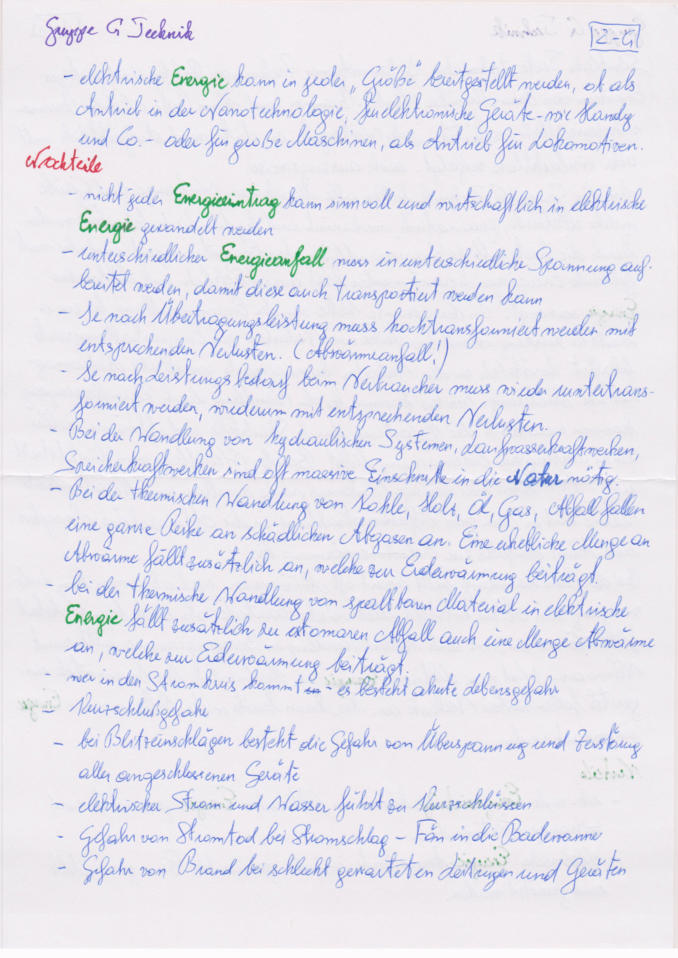 Gruppe G Technik
2-G
- elektrische Energie kann in jeder „Größe" bereitgestellt werden, ob als
Antrieb in der Nanotechnologie, für elektronische Geräte - wie Handy
und Co. - oder für große Maschinen, als Antrieb für Lokomotiven.
Nachteile
- nicht jeder Energieeintrag kann sinnvoll und wirtschaftlich in elektrische
Energie gewandelt werden
- unterschiedlicher Energieanfall muss in unterschiedliche Spannung auf-
bereitet werden, damit diese auch transportiert werden kann
- Je nach Übertragungsleistung muss hochtransformiert werden mit
entsprechenden Verlusten. (Abwärmeanfall!)
- Je nach Leistungsbedarf beim Verbraucher muss wieder runtertrans-
formiert werden, wiederum mit entsprechenden Verlusten.
- Bei der Wandlung von hydraulischen Systemen, Laufwasserkraftwerken,
Speicherkraftwerken sind oft massive Einschnitte in die Natur nötig.
- Bei der thermischen Wandlung von Kohle, Holz, Öl, Gas, Abfall fallen
eine ganze Reihe an schädlichen Abgasen an. Eine erhebliche Menge an
Abwärme fällt zusätzlich an, welche zur Erderwärmung beiträgt.
- bei der thermische Wandlung von spaltbaren Material in elektrische
Energie fällt zusätzlich zu atomaren Abfall auch eine Menge Abwärme
an, welche zur Erderwärmung beiträgt.
- wer in den Stromkreis kommt - es besteht akute Lebensgefahr
- Kurzschlußgefahr
- bei Blitzeinschlägen besteht die Gefahr von Überspannung und Zerstörung
aller angeschlossenen Geräte
- elektrischer Strom und Wasser führt zu Kurzschlüssen
- Gefahr von Stromtod bei Stromschlag - Fön in die Badewanne
- Gefahr von Brand bei schlecht gewarteten Leitungen und Geräten